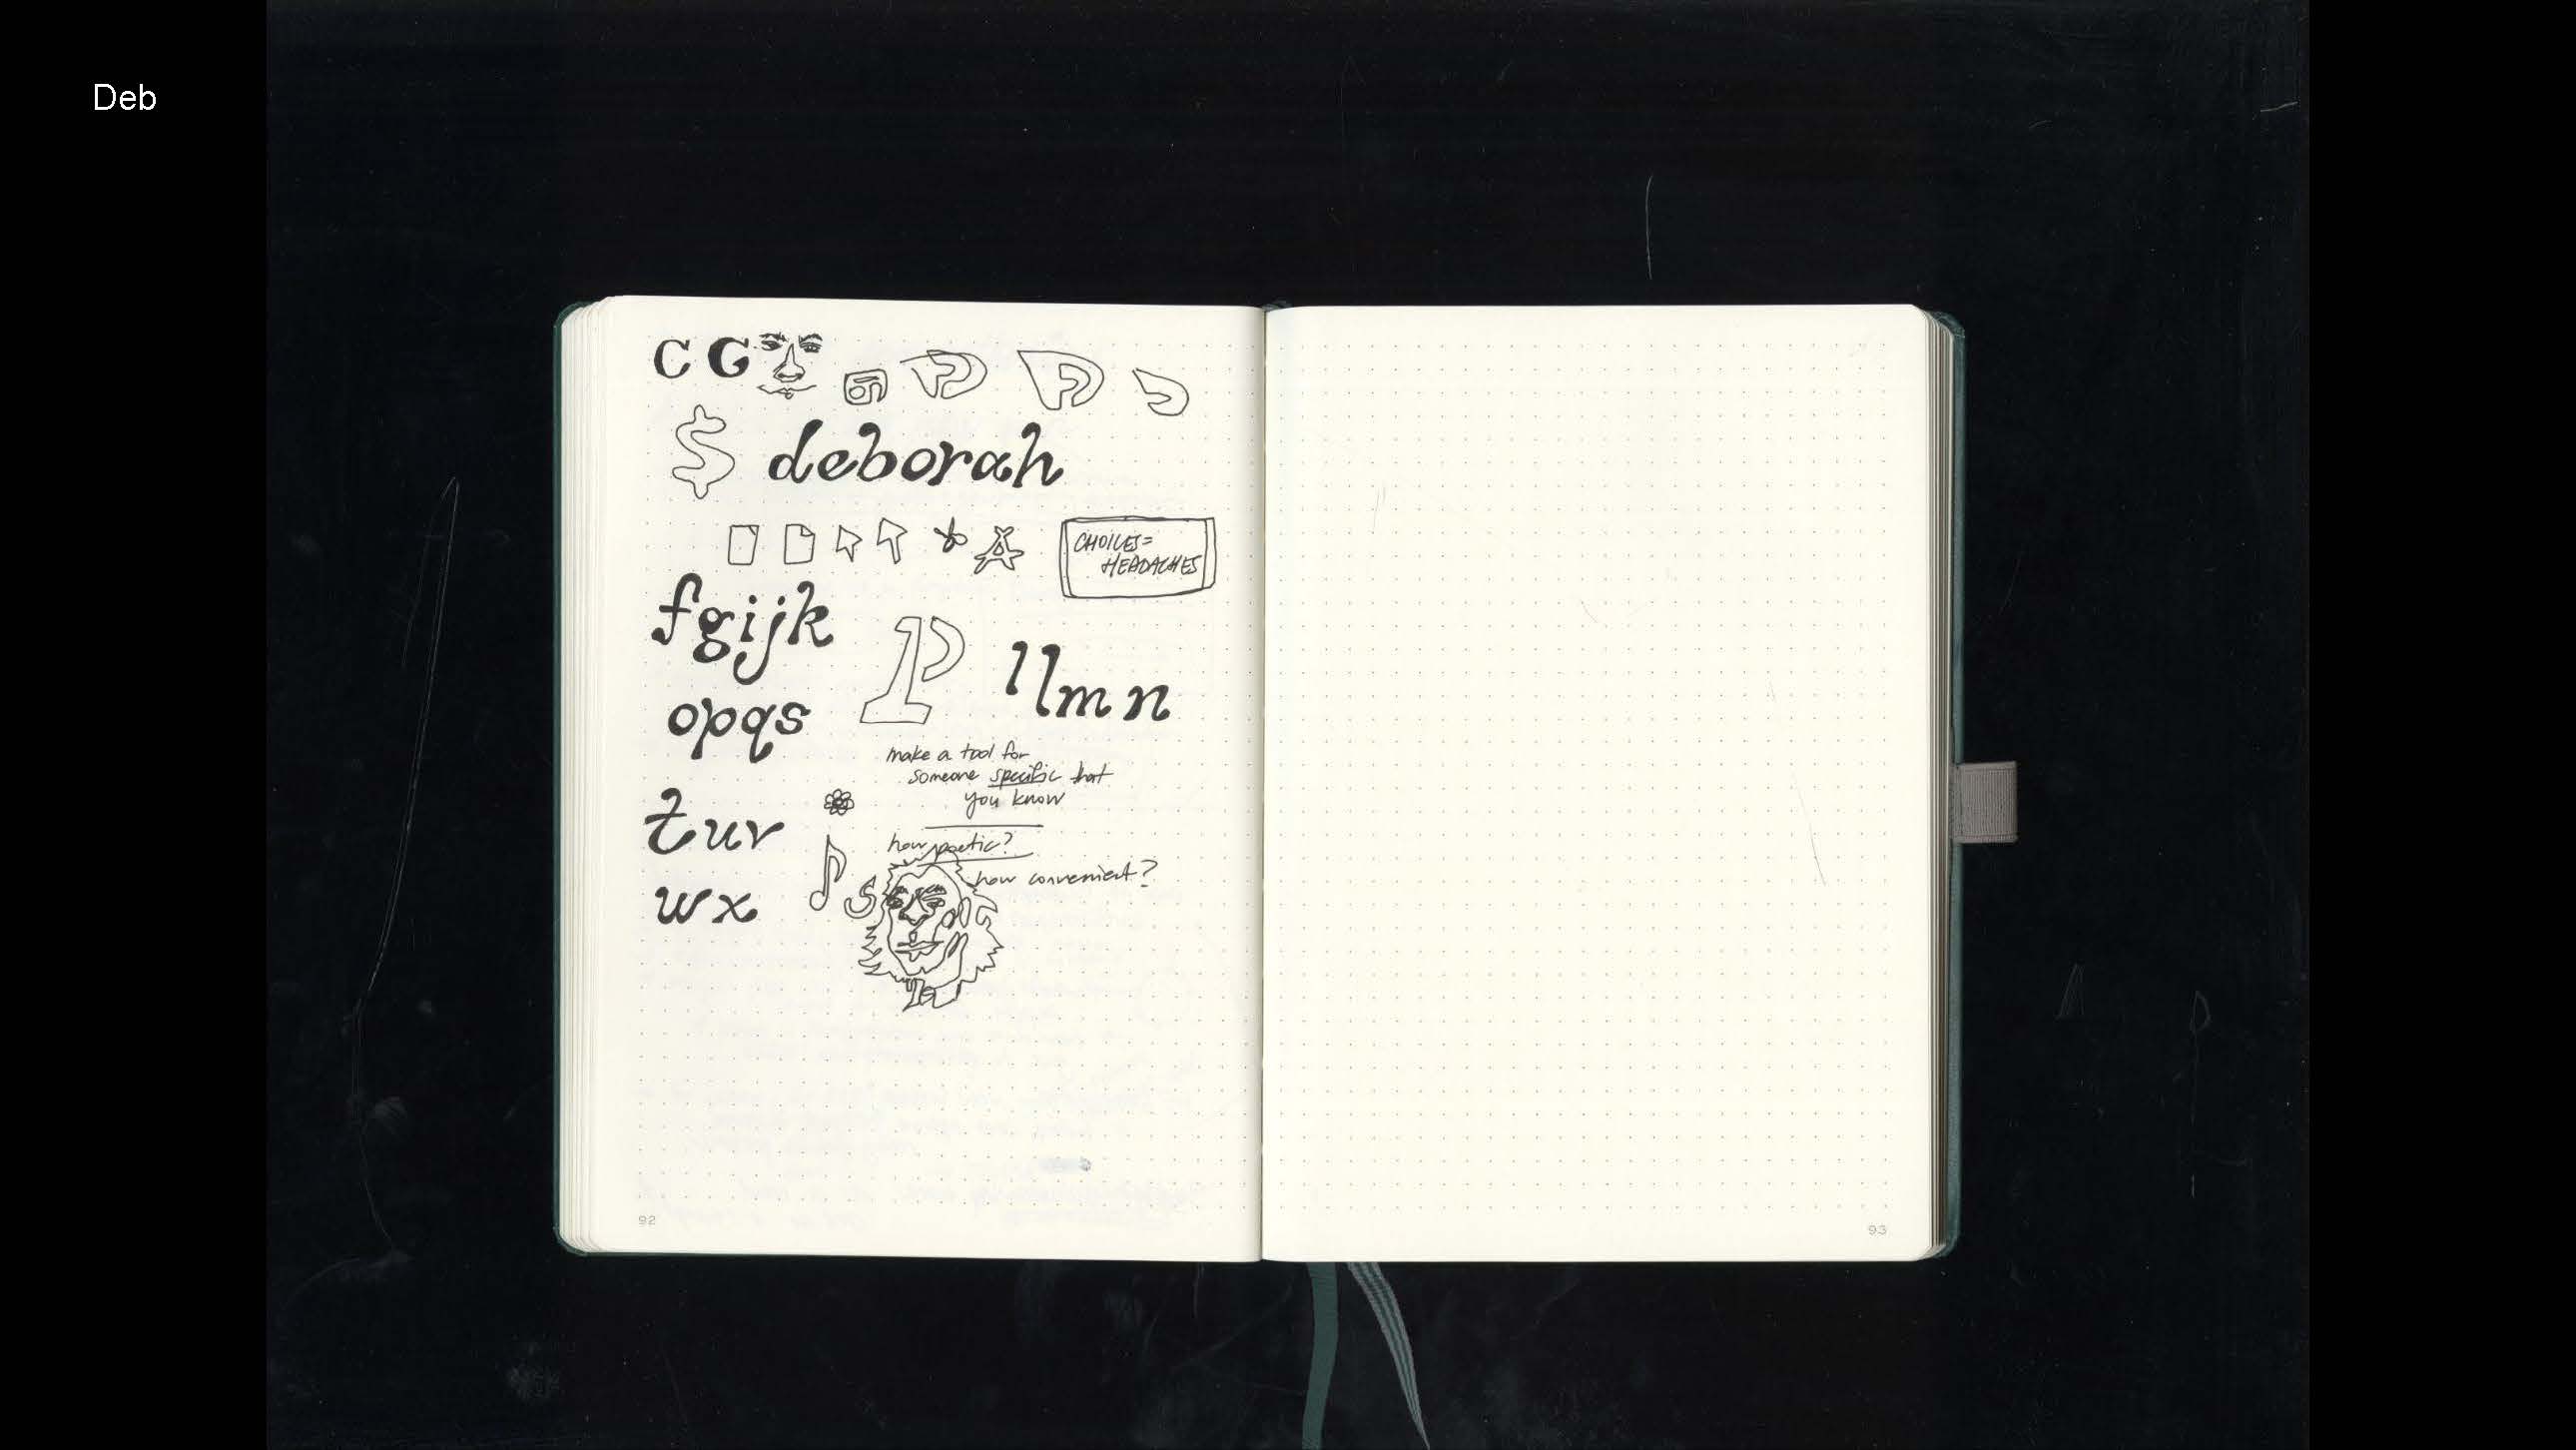 Deb
C G
$ deborah
CHOICES =
HEADACHES
fgijk
P
llmn
opqs
make a tool for
someone specific that
you know
tuv
how poetic?
how convenient?
wx
92
93